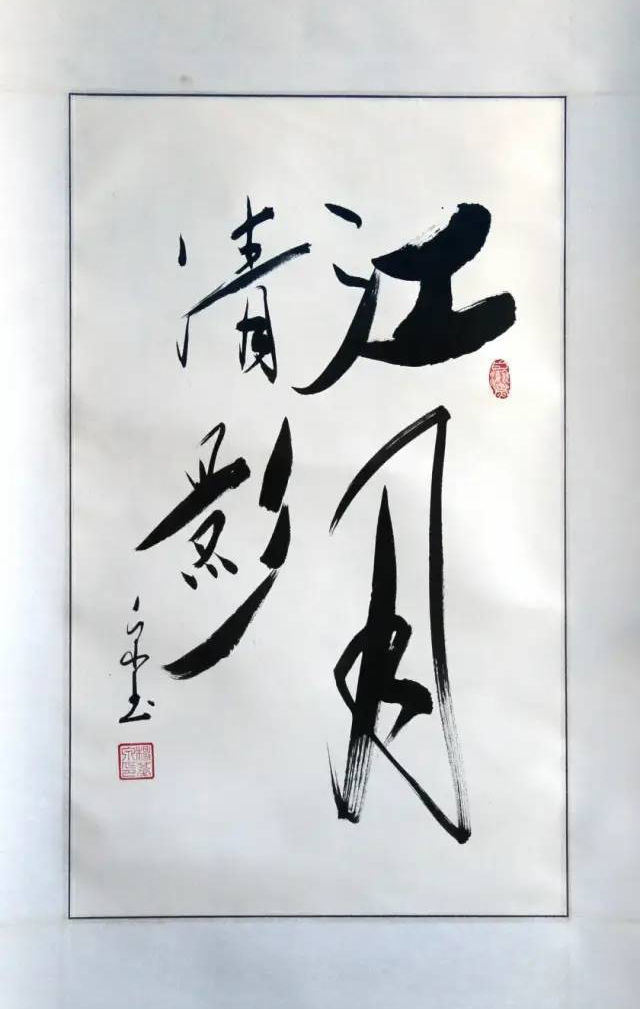 江月
清影